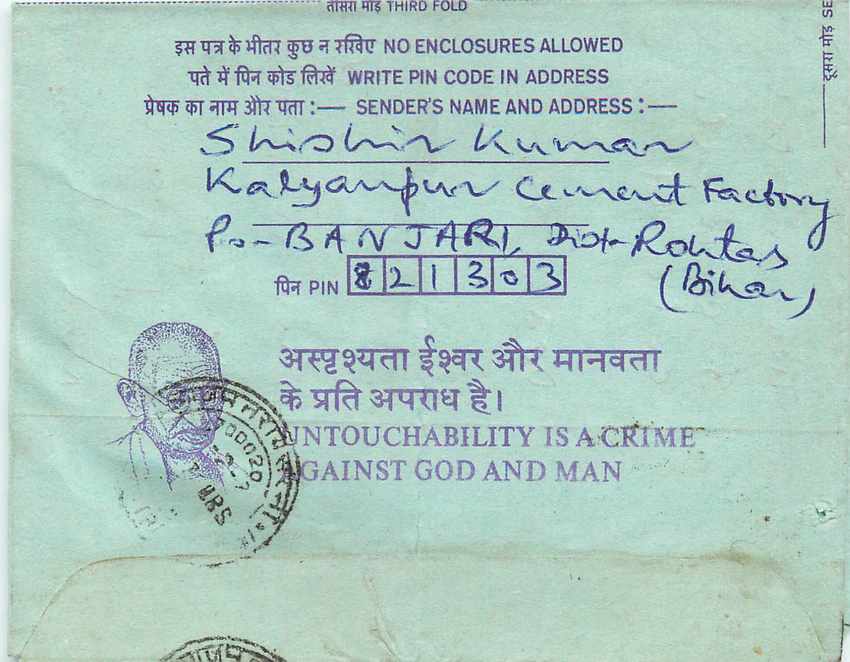 तीसरा मोड़ THIRD FOLD
इस पत्र के भीतर कुछ न रखिए NO ENCLOSURES ALLOWED
पते में पिन कोड लिखें WRITE PIN CODE IN ADDRESS
प्रेषक का नाम और पता :— SENDER'S NAME AND ADDRESS :—
Shishir Kumar
Kalyanpur Cement Factory
Po- BANJARI, Dist- Rohtas
(Bihar)
पिन PIN 821303
अस्पृश्यता ईश्वर और मानवता
के प्रति अपराध है।
UNTOUCHABILITY IS A CRIME
AGAINST GOD AND MAN
700020
HRS
दूसरा मोड़ SE